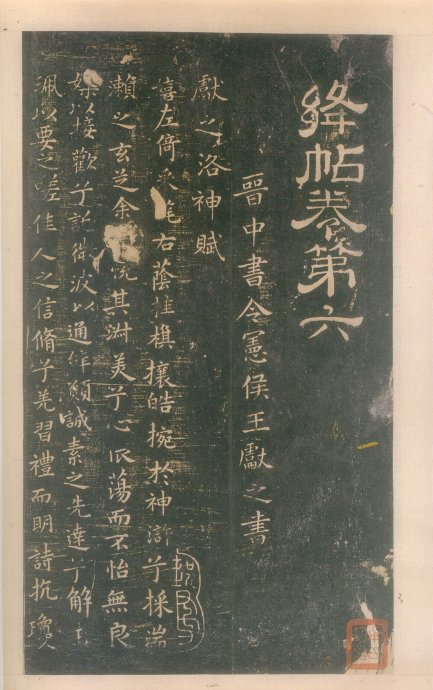 絳帖卷第六
晉中書令憲侯王獻之書
獻之洛神賦
嬉左倚采旄右蔭桂旗攘皓捥於神滸兮採湍
瀨之玄芝余 悅其淑美兮心振蕩而不怡無良
媒以接歡兮託微波以通 願誠素之先達兮解玉
珮以要之嗟佳人之信脩兮羌習禮而明詩抗瓊